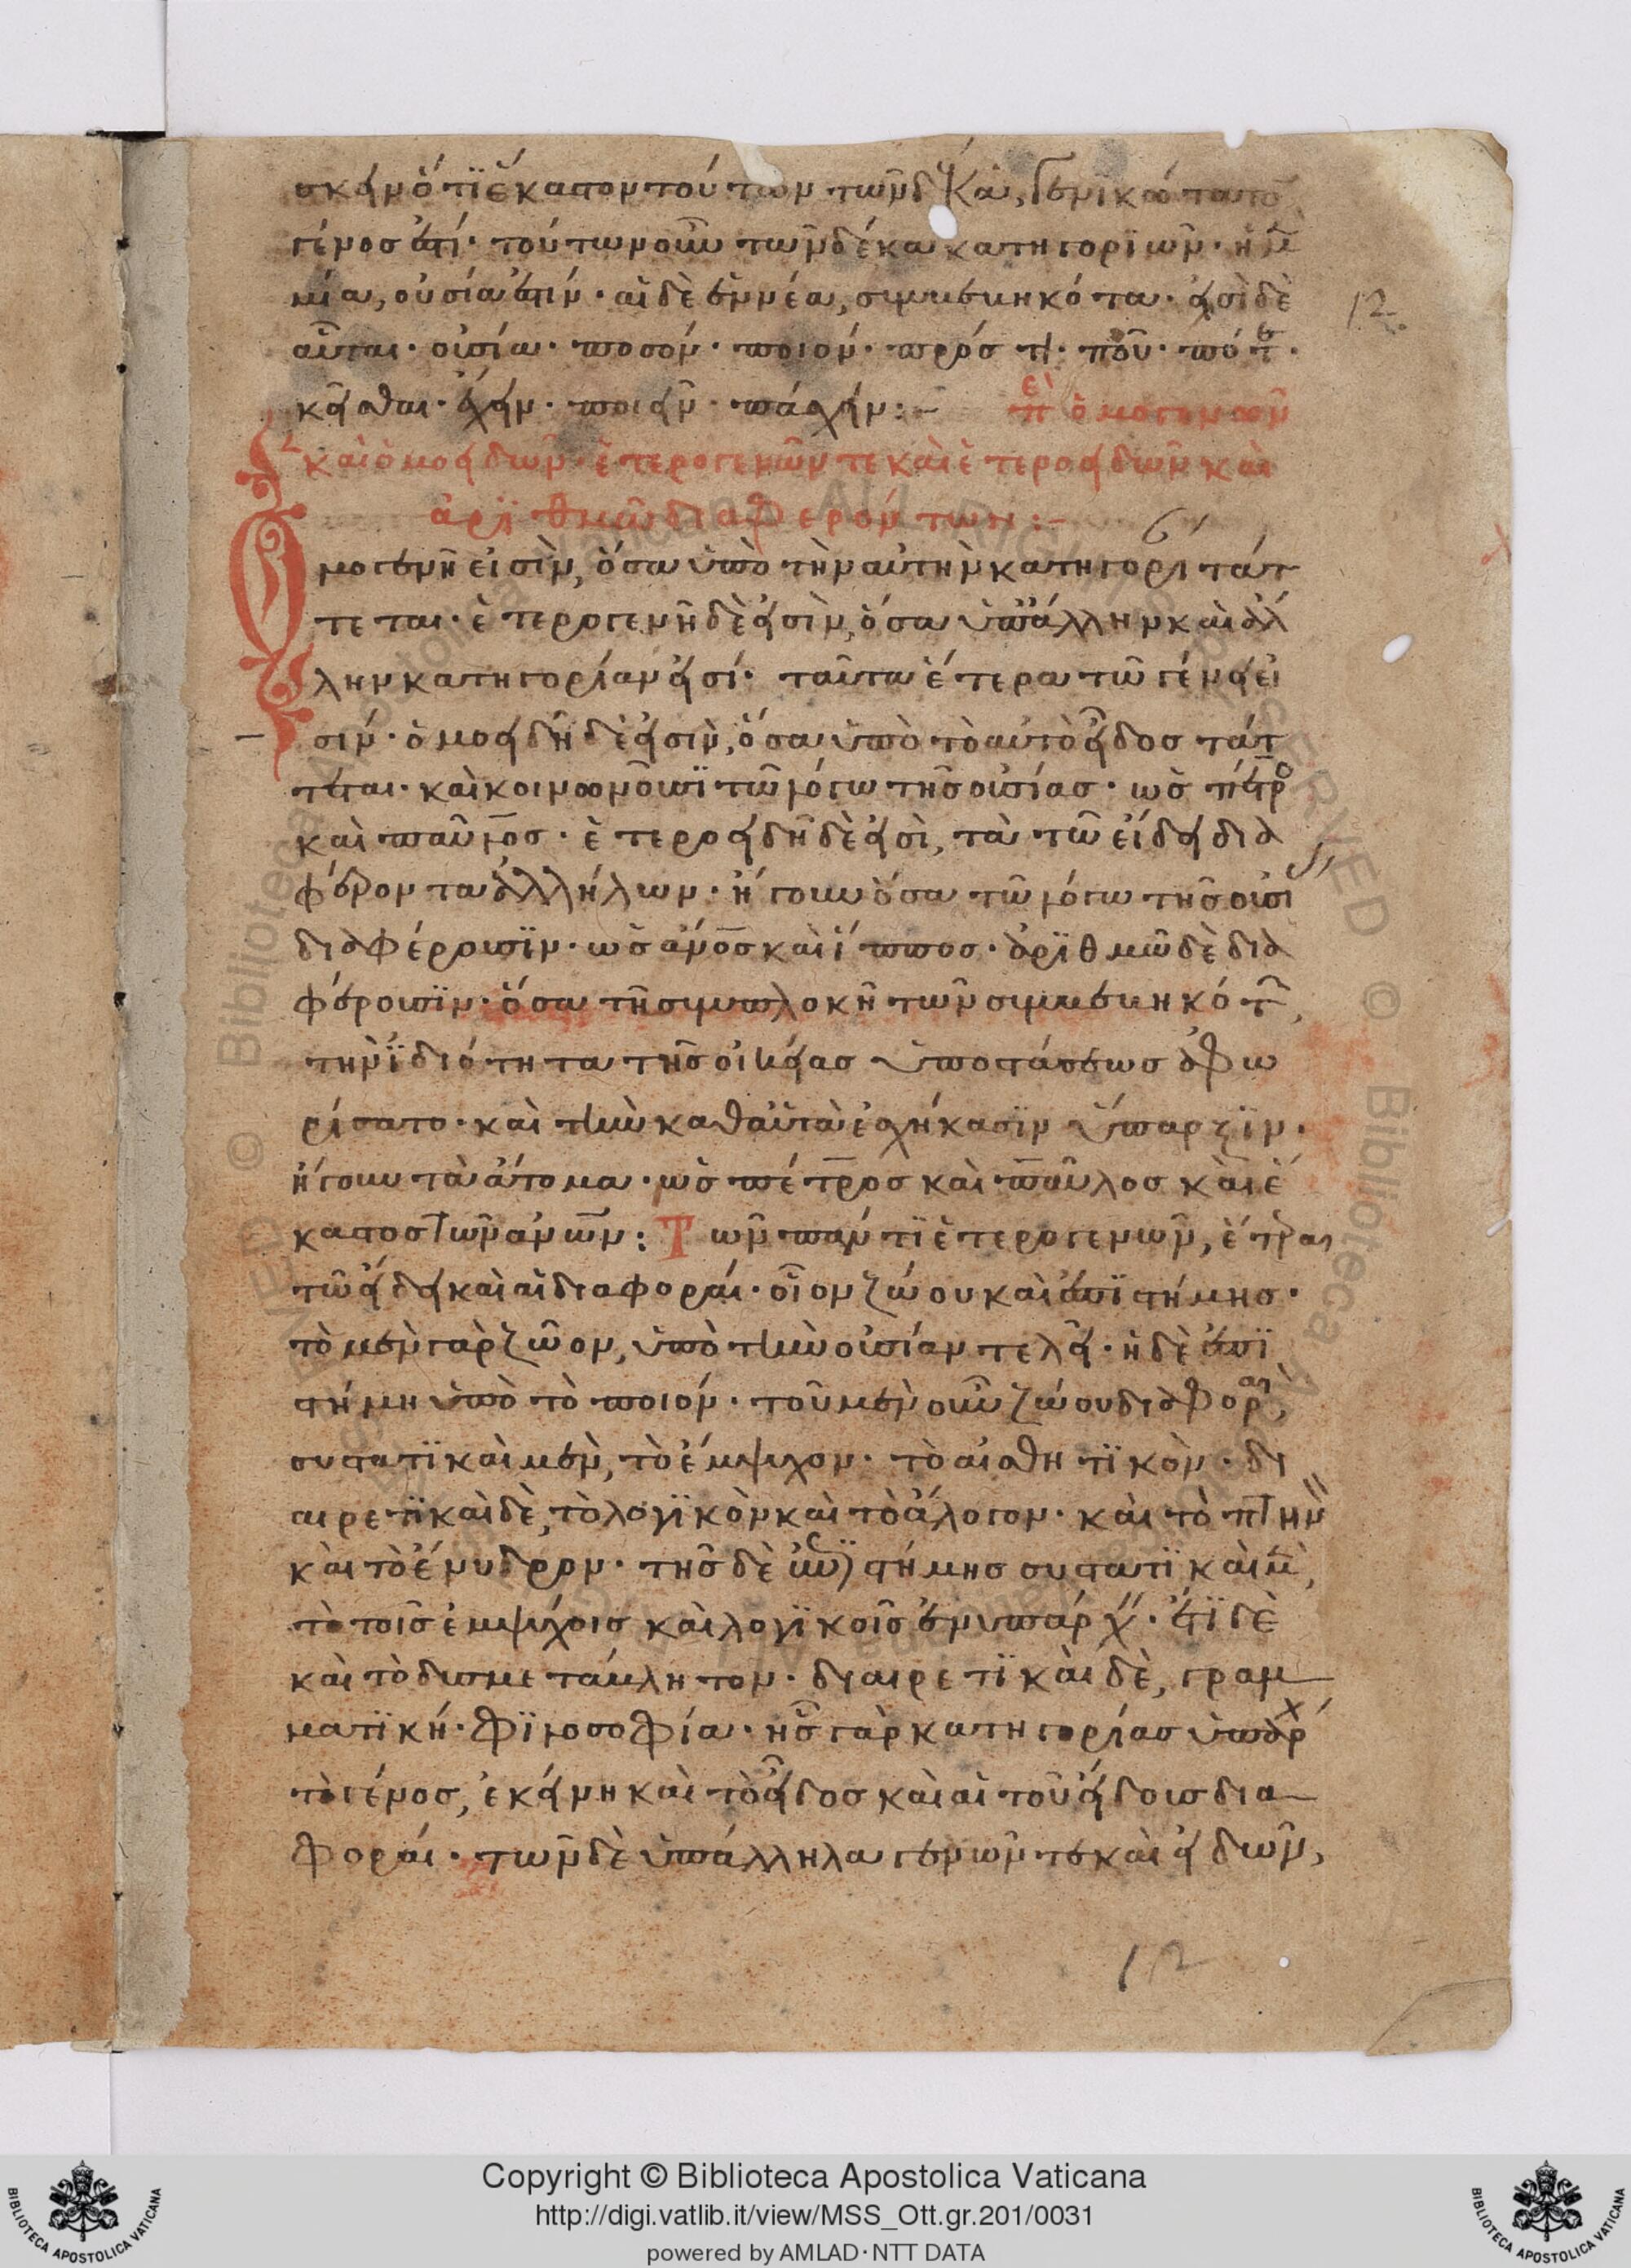 σκειν ὅτι ἕκαστον τούτων τῶν δέκα, γενικώτατον
γένος ἐστί· τούτων οὖν τῶν δέκα κατηγοριῶν· ἡ μὲν
μία, οὐσία ἐστίν· αἱ δὲ ἐννέα, συμβεβηκότα· εἰσὶ δὲ
αὗται· οὐσία· ποσόν· ποιόν· πρός τι· ποῦ· πότε·
κεῖσθαι· ἔχειν· ποιεῖν· πάσχειν:– περὶ ὁμογενῶν
καὶ ὁμοειδῶν· ἑτερογενῶν τε καὶ ἑτεροειδῶν καὶ
ἀριθμῷ διαφερόντων:–
Ὁμογενῆ εἰσὶν, ὅσα ὑπὸ τὴν αὐτὴν κατηγορίαν τάτ
τεται· ἑτερογενῆ δὲ εἰσὶν, ὅσα ὑπ' ἄλλην καὶ ἄλ
λην κατηγορίαν εἰσί· ταῦτα ἕτερα τῷ γένει εἰ
σίν· ὁμοειδῆ δέ εἰσιν, ὅσα ὑπὸ τὸ αὐτὸ εἶδος τάτ
τεται· καὶ κοινωνοῦσι τῷ λόγω τῆς οὐσίας· ὡς πέτρος
καὶ παῦλος· ἑτεροειδῆ δὲ εἰσὶ, τὰ τῷ εἴδει δια
φέροντα ἀλλήλων· ἤγουν ὅσα τῷ λόγω τῆς οὐσίας
διαφέρουσιν· ὡς ἄνος καὶ ἵππος· ἀριθμῷ δὲ δια
φέρουσιν· ὅσα τῇ συμπλοκῇ τῶν συμβεβηκότων,
τὴν ἰδιότητα τῆς οἰκείας ὑποστάσεως ἀφω
ρίσατο· καὶ τὴν καθ' αὑτὰ ἐσχήκασιν ὕπαρξιν·
ἤγουν τὰ ἄτομα· ὡς πέτρος καὶ παῦλος καὶ ἕ
καστος τῶν ἀνων: Τῶν παντὶ ἑτερογενῶν, ἕτεραι
τῷ εἴδει καὶ αἱ διαφοραί· οἷον ζώου καὶ ἐπιστήμης·
τὸ μὲν γὰρ ζῷον, ὑπὸ τὴν οὐσίαν τελεῖ· ἡ δὲ ἐπι
στήμη ὑπὸ τὸ ποιόν· τοῦ μὲν οὖν ζώου διαφοραὶ,
συστατικαὶ μὲν, τὸ ἔμψυχον· τὸ αἰσθητικὸν· δι
αιρετικαὶ δὲ, τὸ λογικὸν καὶ τὸ ἄλογον· καὶ τὸ πτηνὸν
καὶ τὸ ἔνυδρον· τῆς δὲ ἐπιστήμης συστατικαὶ μὲν,
τὸ τοῖς ἐμψύχοις καὶ λογικοῖς ἐνυπάρχειν· ἔτι δὲ
καὶ τὸ δυσμετάβλητον· διαιρετικαὶ δὲ, γραμ
ματική· φιλοσοφία· ἧς γὰρ κατηγορίας ὑπάρχει
τὸ γένος, ἐκείνη καὶ τὸ εἶδος καὶ αἱ τοῦ εἴδους δια
φοραί· τῶν δὲ ὑπάλληλα γενῶν τε καὶ εἰδῶν,
12
12
Copyright © Biblioteca Apostolica Vaticana
http://digi.vatlib.it/view/MSS_Ott.gr.201/0031
powered by AMLAD·NTT DATA